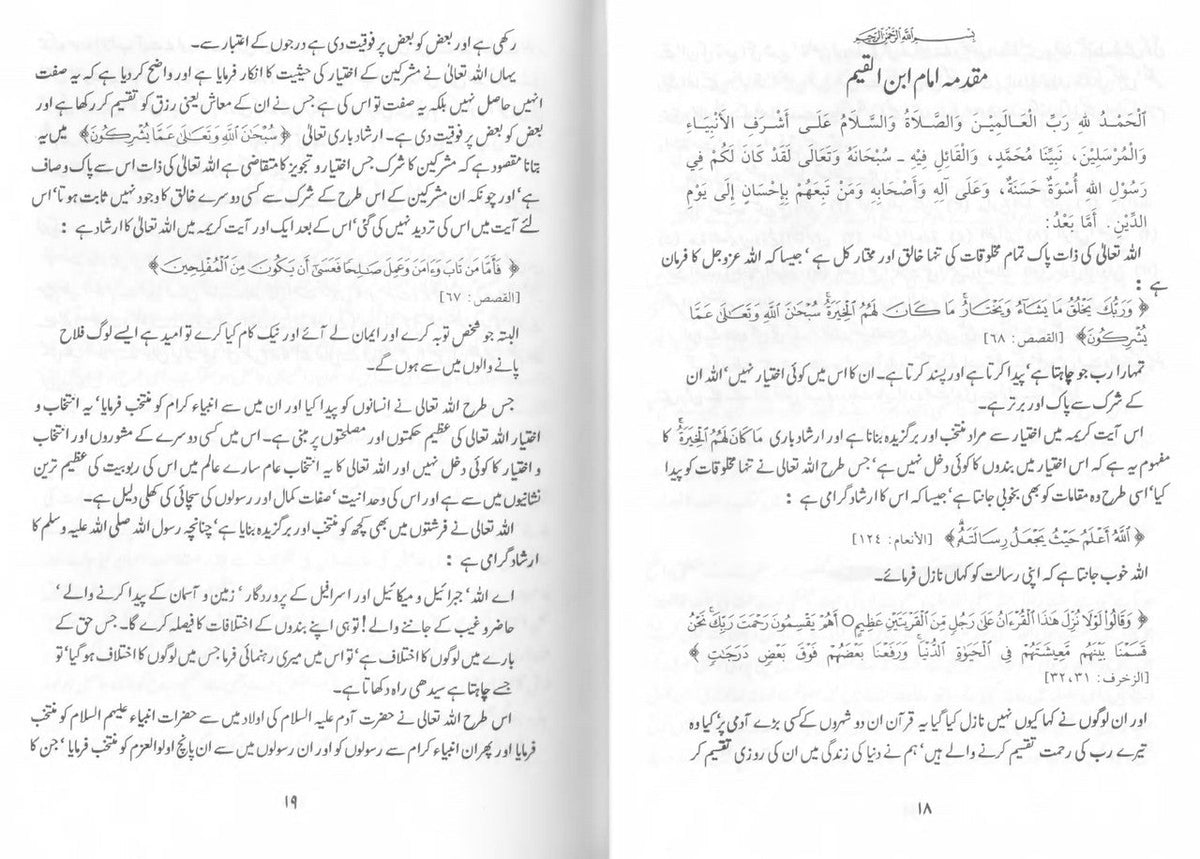 بسم الله الرحمن الرحيم
مقدمہ امام ابن القیم
اَلْحَمْدُ لله رَبِّ الْعَالَمِيْنَ وَالصَّلاَةُ وَالسَّلاَمُ عَلَى أَشْرَفِ الأَنْبِيَاءِ
وَالْمُرْسَلِيْنَ، نَبِيِّنَا مُحَمَّدٍ، وَالْقَائِلِ فِيْهِ ـ سُبْحَانَهُ وَتَعَالَى لَقَدْ كَانَ لَكُمْ فِي
رَسُوْلِ الله أُسْوَةٌ حَسَنَةٌ، وَعَلَى آلِهِ وَأَصْحَابِهِ وَمَنْ تَبِعَهُمْ بِإِحْسَانٍ إِلَى يَوْمِ
الدِّيْنِ. أَمَّا بَعْدُ:
اللہ تعالیٰ کی ذات پاک تمام مخلوقات کی تنہا خالق اور مختار کل ہے ‘ جیسا کہ اللہ عزوجل کا فرمان
ہے :
﴿ وَرَبُّكَ يَخْلُقُ مَا يَشَآءُ وَيَخْتَارُ مَا كَانَ لَهُمُ الْخِيَرَةُ سُبْحَٰنَ اللَّهِ وَتَعَٰلَىٰ عَمَّا
يُشْرِكُونَ﴾ [القصص: ٦٨]
تمہارا رب جو چاہتا ہے ‘ پیدا کرتا ہے اور پسند کرتا ہے۔ ان کا اس میں کوئی اختیار نہیں ‘ اللہ ان
کے شرک سے پاک اور برتر ہے۔
اس آیت کریمہ میں اختیار سے مراد منتخب اور برگزیدہ بنانا ہے اور ارشاد باری مَا كَانَ لَهُمُ الْخِيَرَةُ کا
مفہوم یہ ہے کہ اس اختیار میں بندوں کا کوئی دخل نہیں ہے ‘ جس طرح اللہ تعالیٰ نے تنہا مخلوقات کو پیدا
کیا ‘ اسی طرح وہ مقامات کو بھی بخوبی جانتا ہے ‘ جیسا کہ اس کا ارشاد گرامی ہے :
﴿ اللَّهُ أَعْلَمُ حَيْثُ يَجْعَلُ رِسَالَتَهُ﴾ [الأنعام: ١٢٤]
اللہ خوب جانتا ہے کہ اپنی رسالت کو کہاں نازل فرمائے۔
﴿ وَقَالُوا لَوْلَا نُزِّلَ هَٰذَا الْقُرْءَانُ عَلَىٰ رَجُلٍ مِّنَ الْقَرْيَتَيْنِ عَظِيمٍ ○ أَهُمْ يَقْسِمُونَ رَحْمَتَ رَبِّكَ نَحْنُ
قَسَمْنَا بَيْنَهُم مَّعِيشَتَهُمْ فِي الْحَيَوٰةِ الدُّنْيَا وَرَفَعْنَا بَعْضَهُمْ فَوْقَ بَعْضٍ دَرَجَٰتٍ ﴾
[الزخرف: ٣١، ٣٢]
اور ان لوگوں نے کہا کیوں نہیں نازل کیا گیا یہ قرآن ان دو شہروں کے کسی بڑے آدمی پر کیا وہ
تیرے رب کی رحمت تقسیم کرنے والے ہیں ‘ ہم نے دنیا کی زندگی میں ان کی روزی تقسیم کر
١٨
رکھی ہے اور بعض کو بعض پر فوقیت دی ہے درجوں کے اعتبار سے۔
یہاں اللہ تعالیٰ نے مشرکین کے اختیار کی حیثیت کا انکار فرمایا ہے اور واضح کر دیا ہے کہ یہ صفت
انہیں حاصل نہیں بلکہ یہ صفت تو اس کی ہے جس نے ان کے معاش یعنی رزق کو تقسیم کر رکھا ہے اور
بعض کو بعض پر فوقیت دی ہے۔ ارشاد باری تعالی ﴿ سُبْحَانَ اللَّهِ وَتَعَالَىٰ عَمَّا يُشْرِكُونَ﴾ میں یہ
بتانا مقصود ہے کہ مشرکین کا شرک جس اختیار و تجویز کا متقاضی ہے اللہ تعالیٰ کی ذات اس سے پاک و صاف
ہے ‘ اور چونکہ ان مشرکین کے اس طرح کے شرک سے کسی دوسرے خالق کا وجود نہیں ثابت ہوتا ‘ اس
لئے آیت میں اس کی تردید نہیں کی گئی ‘ اس کے بعد ایک اور آیت کریمہ میں اللہ تعالیٰ کا ارشاد ہے :
﴿ فَأَمَّا مَن تَابَ وَءَامَنَ وَعَمِلَ صَٰلِحًا فَعَسَىٰ أَن يَكُونَ مِنَ الْمُفْلِحِينَ﴾
[القصص: ٦٧]
البتہ جو شخص توبہ کرے اور ایمان لے آئے اور نیک کام کیا کرے تو امید ہے ایسے لوگ فلاح
پانے والوں میں سے ہوں گے۔
جس طرح اللہ تعالی نے انسانوں کو پیدا کیا اور ان میں سے انبیاء کرام کو منتخب فرمایا ‘ یہ انتخاب و
اختیار اللہ تعالی کی عظیم حکمتوں اور مصلحتوں پر مبنی ہے۔ اس میں کسی دوسرے کے مشوروں اور انتخاب
و اختیار کا کوئی دخل نہیں اور اللہ تعالی کا یہ انتخاب عام سارے عالم میں اس کی ربوبیت کی عظیم ترین
نشانیوں میں سے ہے اور اس کی وحدانیت ‘ صفات کمال اور رسولوں کی سچائی کی کھلی دلیل ہے۔
اللہ تعالی نے فرشتوں میں بھی کچھ کو منتخب اور برگزیدہ بنایا ہے ‘ چنانچہ رسول اللہ صلی اللہ علیہ وسلم کا
ارشاد گرامی ہے :
اے اللہ ‘ جبرائیل و میکائیل اور اسرافیل کے پروردگار ‘ زمین و آسمان کے پیدا کرنے والے ‘
حاضر و غیب کے جاننے والے ! تو ہی اپنے بندوں کے اختلافات کا فیصلہ کرے گا۔ جس حق کے
بارے میں لوگوں کا اختلاف ہے ‘ تو اس میں میری رہنمائی فرما جس میں لوگوں کا اختلاف ہو گیا ‘ تو
جسے چاہتا ہے سیدھی راہ دکھاتا ہے۔
اس طرح اللہ تعالی نے حضرت آدم علیہ السلام کی اولاد میں سے حضرات انبیاء علیہم السلام کو منتخب
فرمایا اور پھر ان انبیاء کرام سے رسولوں کو اور ان رسولوں میں سے ان پانچ اولوالعزم کو منتخب فرمایا ‘ جن کا
١٩